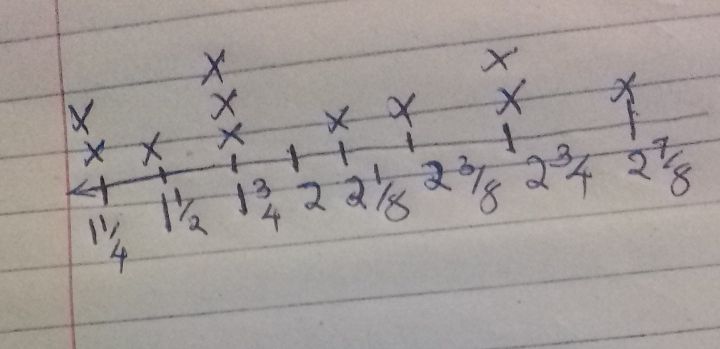 x x
x x x
x x x x x x
1 1/4 1 1/2 1 3/4 2 2 1/8 2 3/8 2 3/4 2 7/8